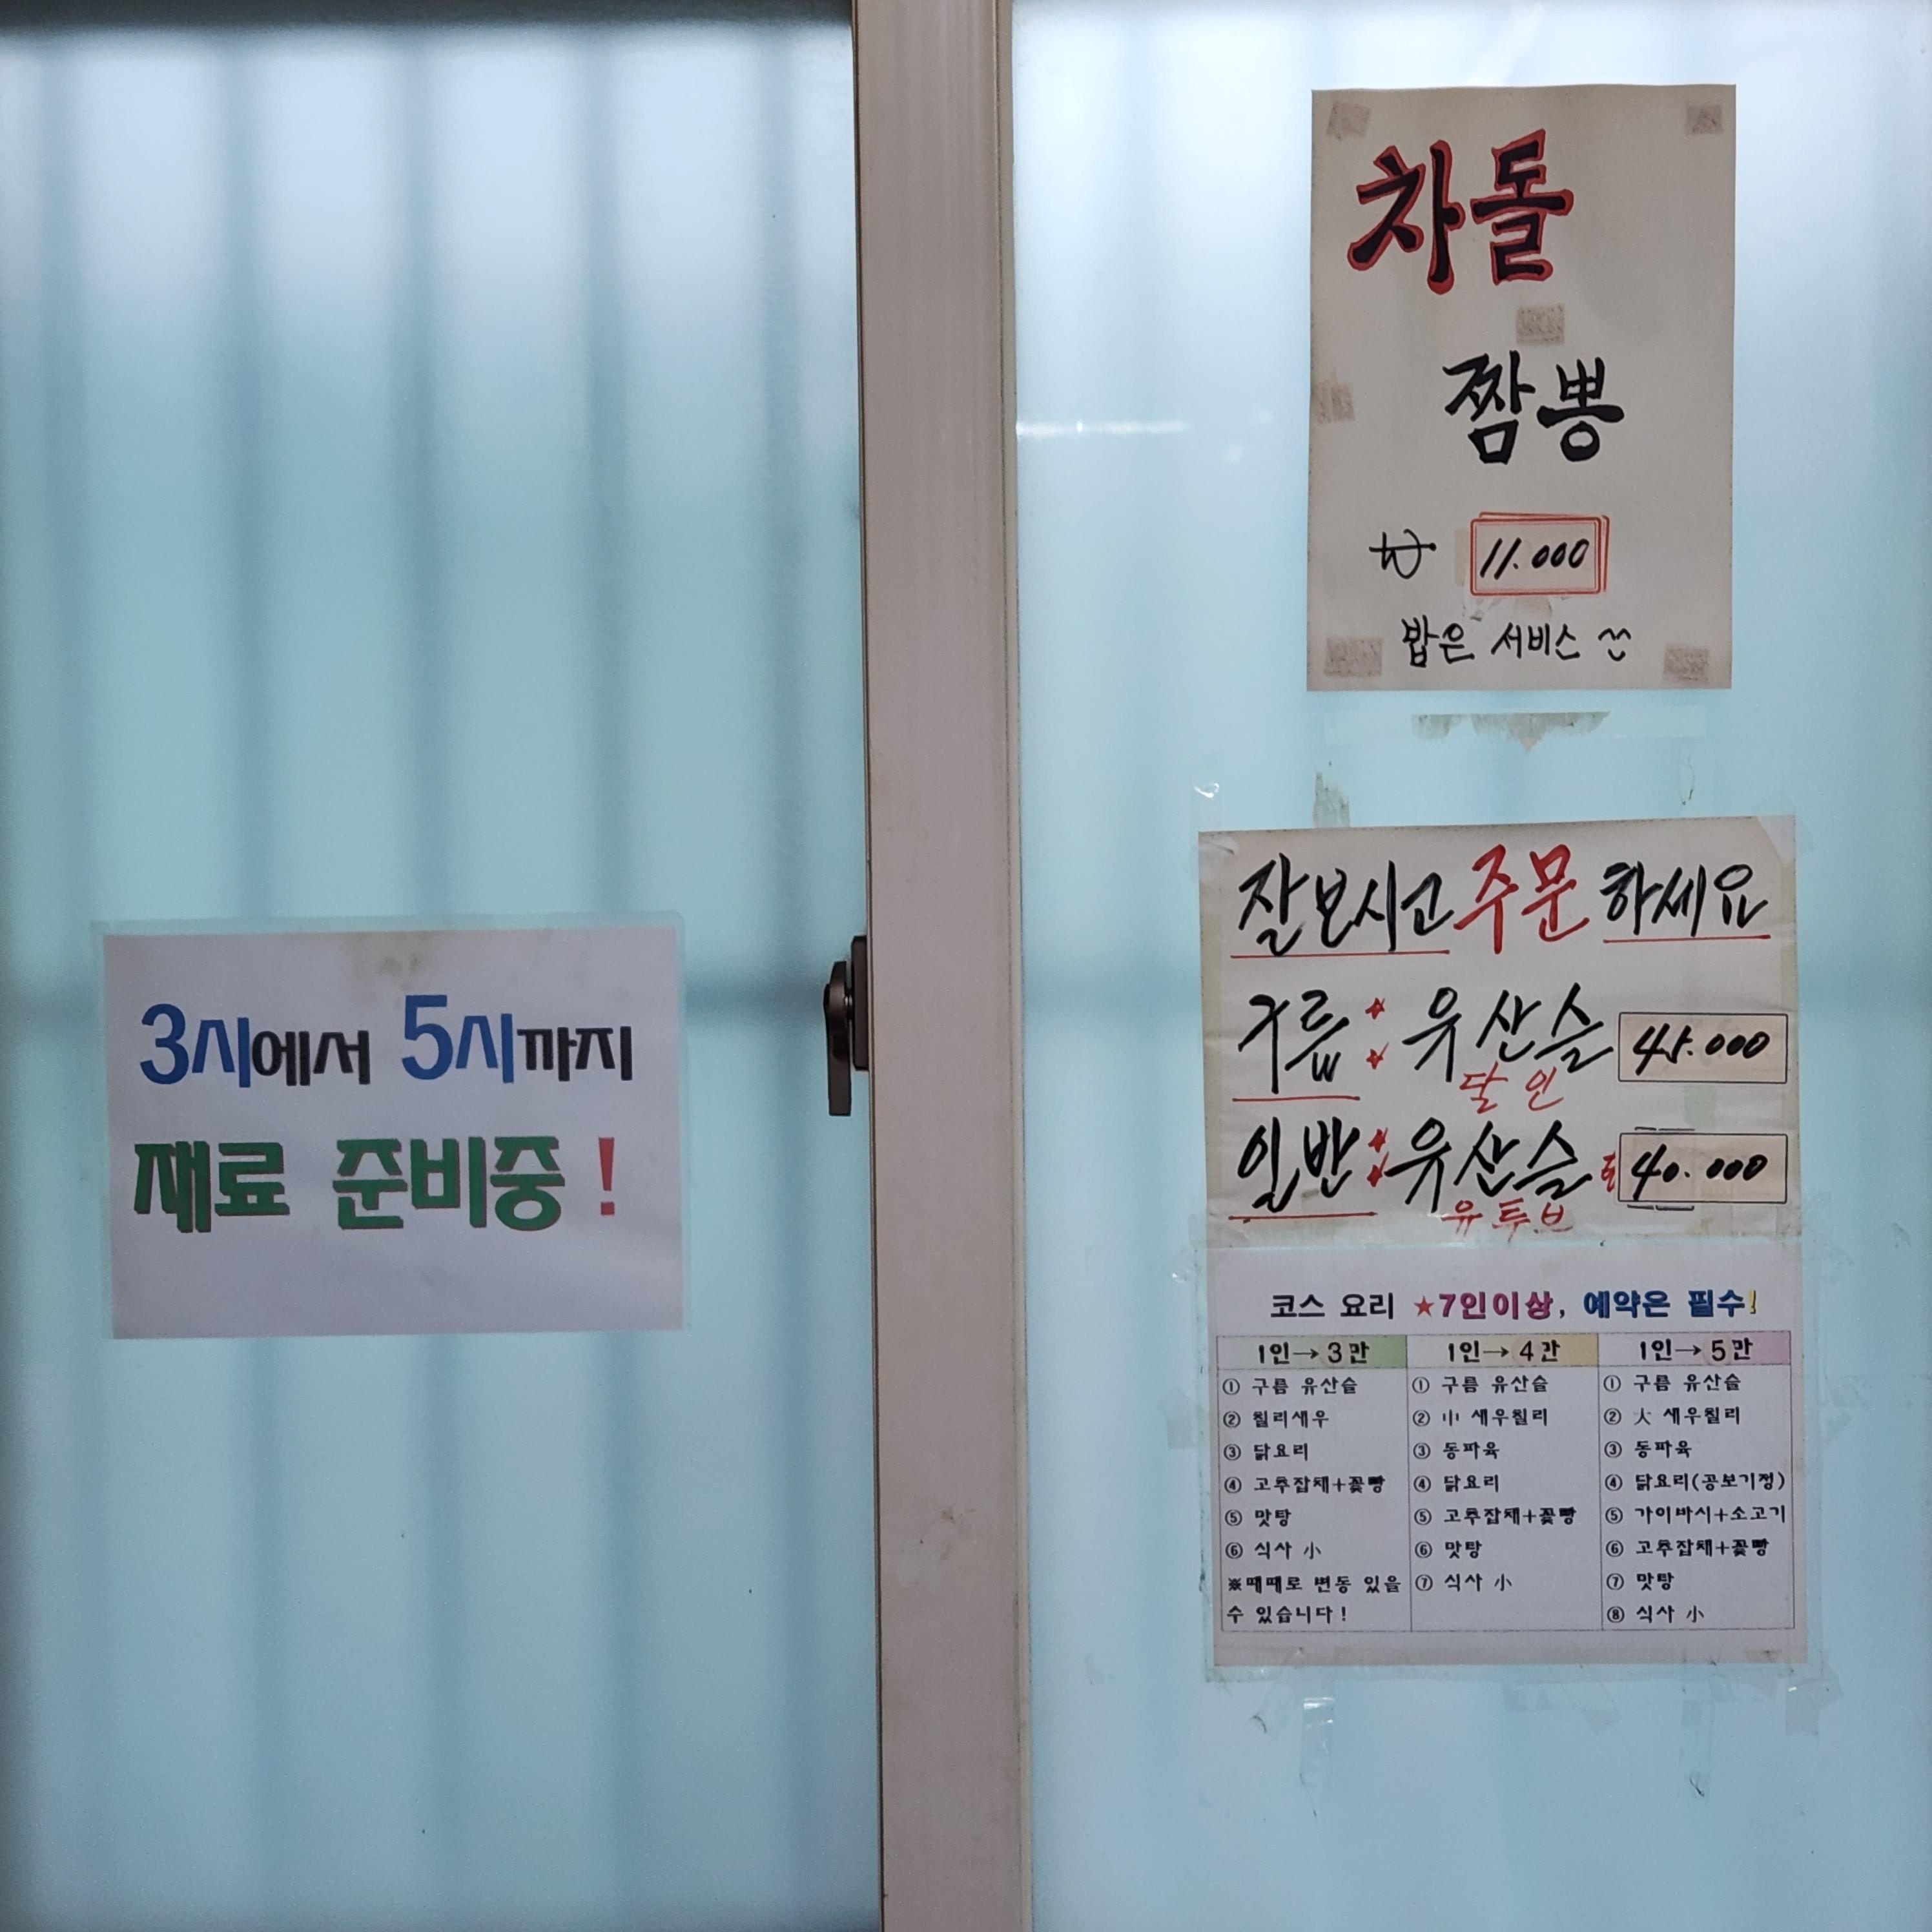 3시에서 5시까지
재료 준비중!
차돌
짬뽕
₩ 11.000
밥은 서비스 ^^
잘보시고 주문 하세요
구름: 유산슬 45.000
달인
일반: 유산슬 40.000
유투브
코스 요리 ★7인이상, 예약은 필수!
1인→3만
① 구름 유산슬
② 칠리새우
③ 닭요리
④ 고추잡채+꽃빵
⑤ 맛탕
⑥ 식사 小
※때때로 변동 있을
수 있습니다!
1인→4만
① 구름 유산슬
② 中 새우칠리
③ 동파육
④ 닭요리
⑤ 고추잡채+꽃빵
⑥ 맛탕
⑦ 식사 小
1인→5만
① 구름 유산슬
② 大 새우칠리
③ 동파육
④ 닭요리(공보기정)
⑤ 가이바시+소고기
⑥ 고추잡채+꽃빵
⑦ 맛탕
⑧ 식사 小